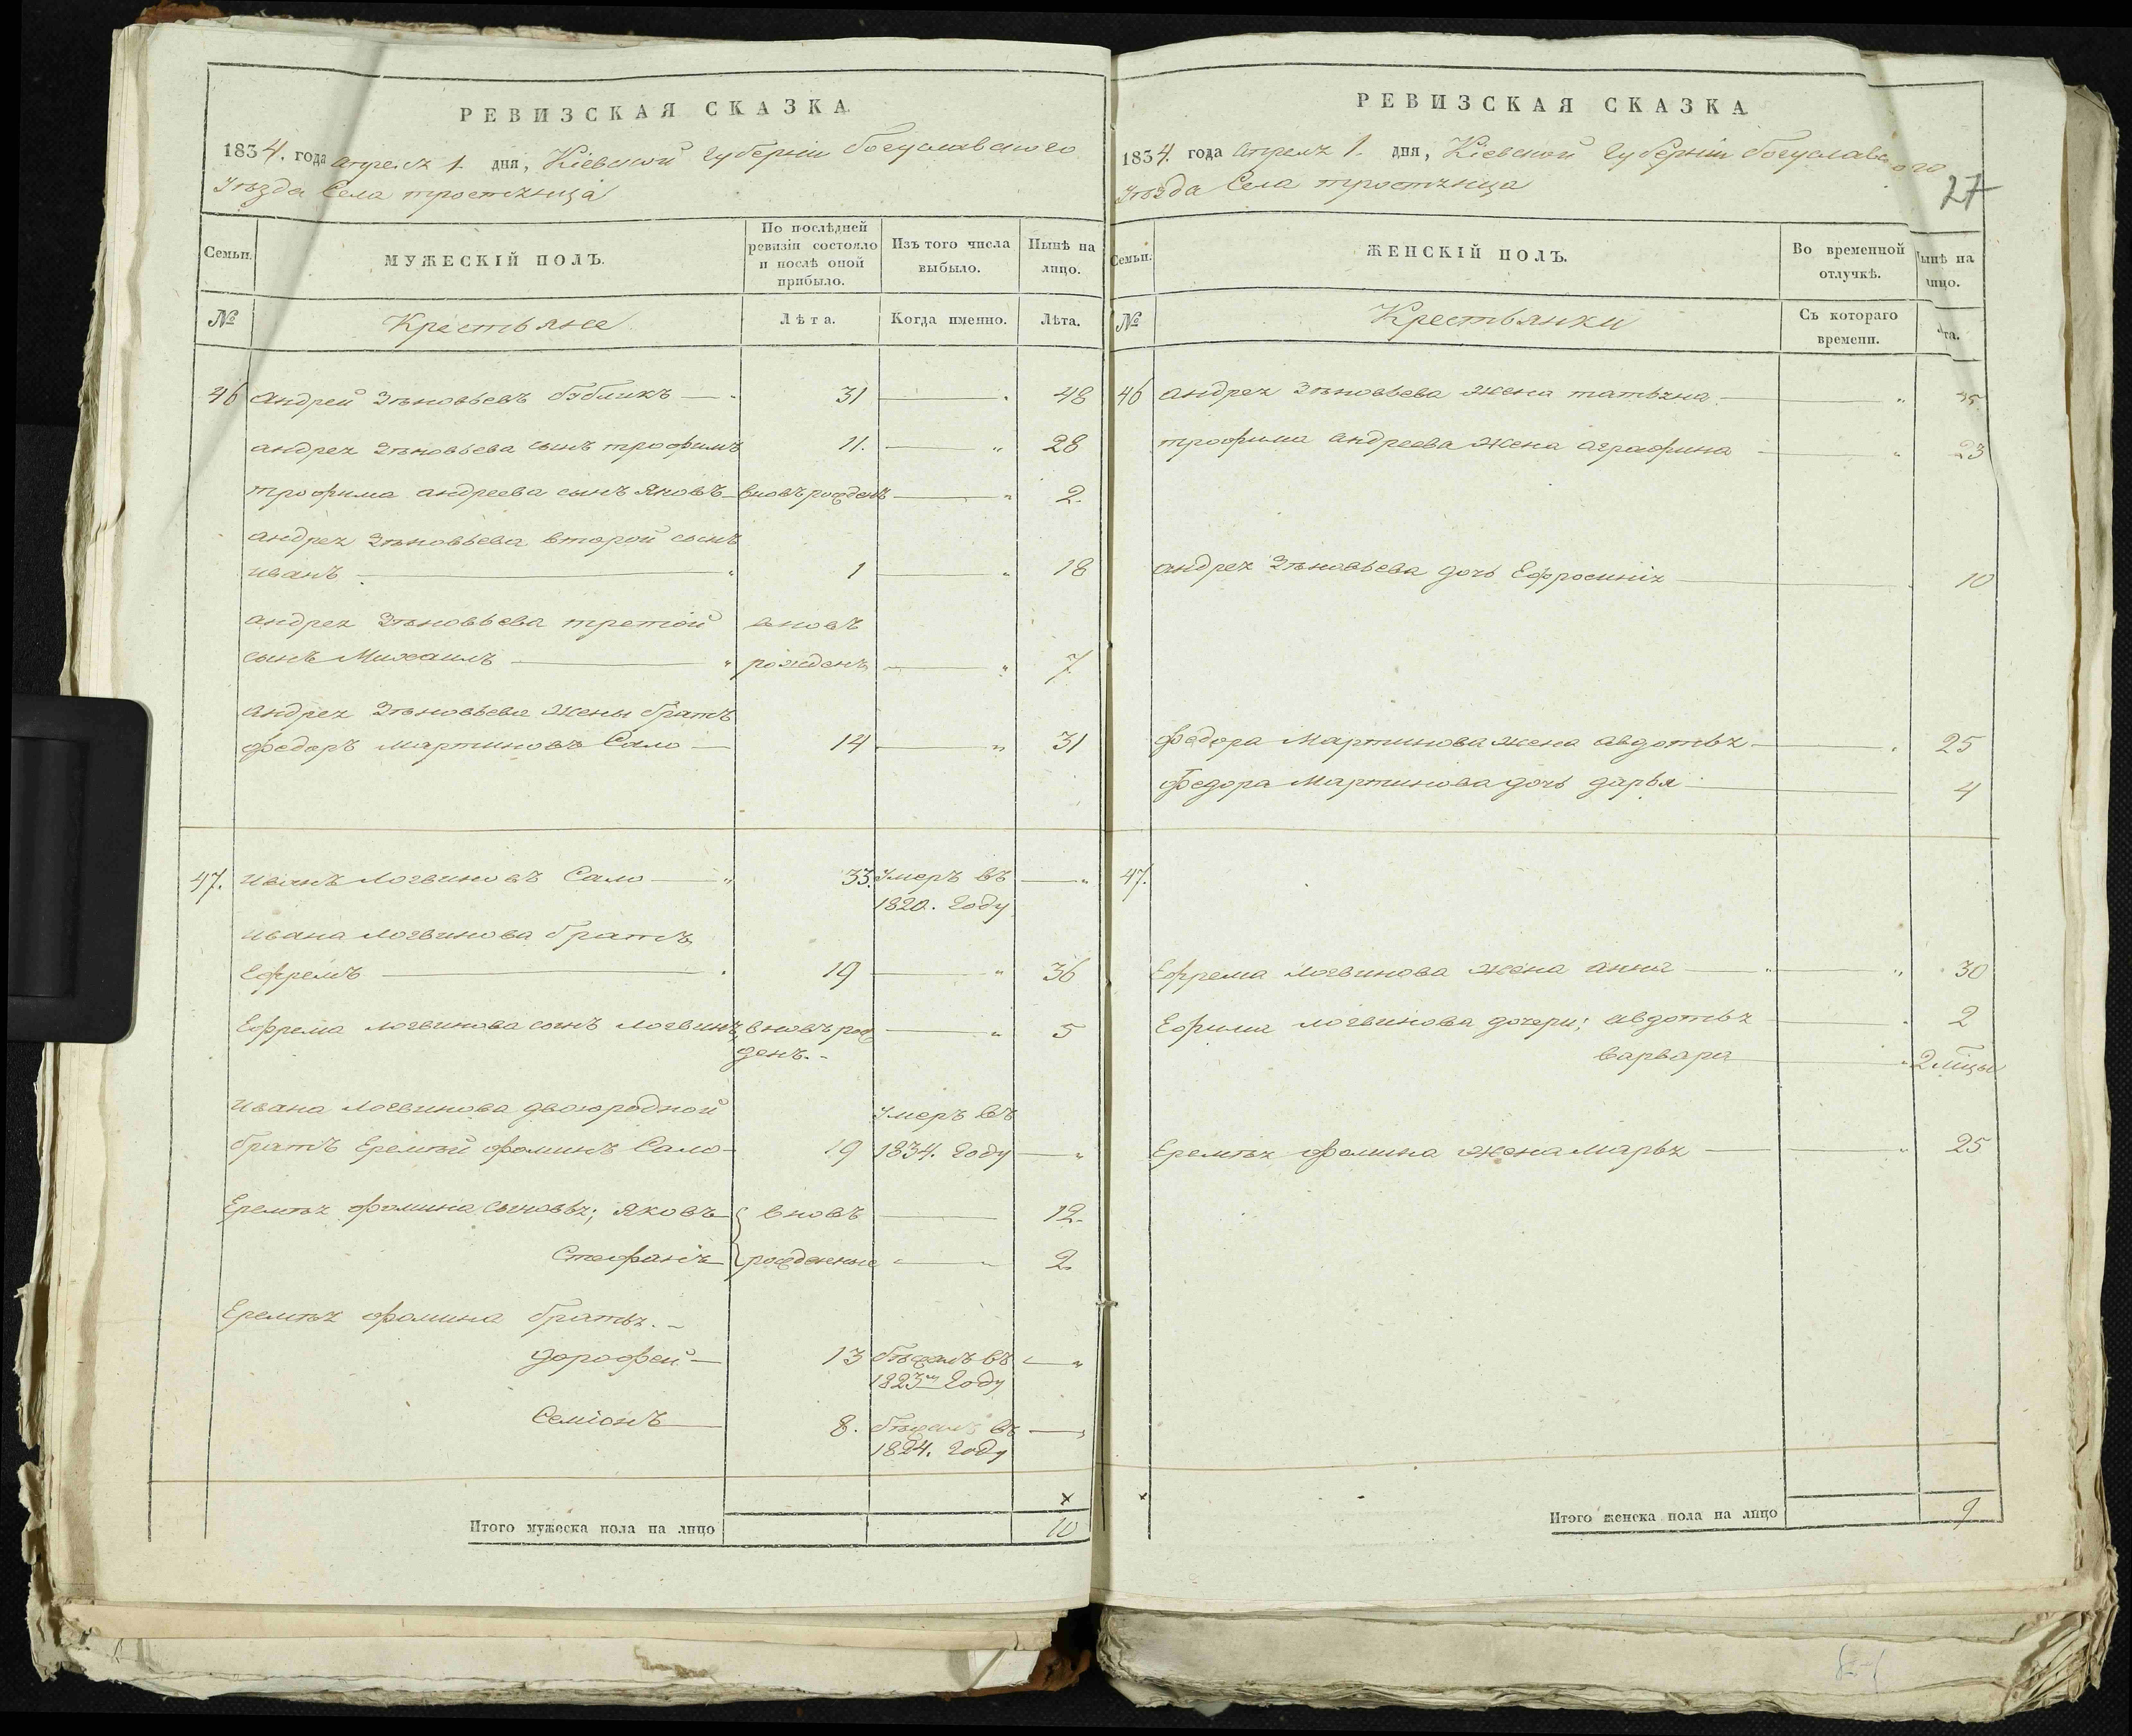 РЕВИЗСКАЯ СКАЗКА
1834. года апреля 1. дня, Кіевской губерніи богуславского
уѣзда Села тростянца
Семьи.
МУЖЕСКІЙ ПОЛЪ.
По послѣдней ревизіи состояло и послѣ оной прибыло.
Изъ того числа выбыло.
Нынѣ на лицо.
№
Крестьяне
Лѣта.
Когда именно.
Лѣта.
46 андрей Зѣновьевъ бубликъ 31 48
андрея Зѣновьева сынъ трофимъ 11. 28
трофима андреева сынъ яковъ вновь рожденъ 2.
андрея Зѣновьева второй сынъ
иванъ 1 18
андрея Зѣновьева третій вновь
сынъ Михаилъ рожденъ 7
андрея Зѣновьева жены братъ
федоръ мартиновъ Сало 14 31
47. иванъ логвиновъ Сало 33. умеръ въ
1820. году
ивана логвинова братъ
Ефремъ 19 36
Ефрема логвинова сынъ логвинъ вновь рож 5
денъ.
ивана логвинова двоюродной умеръ въ
братъ Еремѣй фоминъ Сало 19 1834. году
Еремѣя фомина сыновья; яковъ вновь 12.
Стефанъ рожденные 2
Еремѣя фомина братья.
дорофей 13 бѣжалъ въ
1823м году
Семіонъ 8. бѣжалъ въ
1824. году
х
Итого мужеска пола на лицо 10
РЕВИЗСКАЯ СКАЗКА
1834. года апреля 1. дня, Кіевской губерніи богуславского
уѣзда Села тростянца
27
Семьи.
ЖЕНСКІЙ ПОЛЪ.
Во временной отлучкѣ.
Нынѣ на лицо.
№
Крестьянки
Съ котораго времени.
Лѣта.
46 андрея Зѣновьева жена татьяна
трофима андреева жена аграфина 23
андрея Зѣновьева дочь Ефросинія 10
федора Мартинова жена авдотья 25
федора Мартинова дочь дарья 4
47.
Ефрема логвинова жена анна 30
Ефрима логвинова дочери; авдотья 2
варвара 2 мѣцы
Еремѣя фомина жена марья 25
х
Итого женска пола на лицо 9